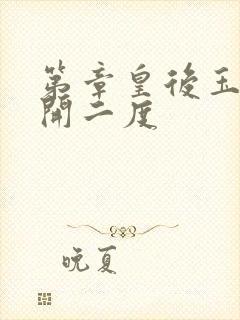 第章皇後玉
開二度
晚夏